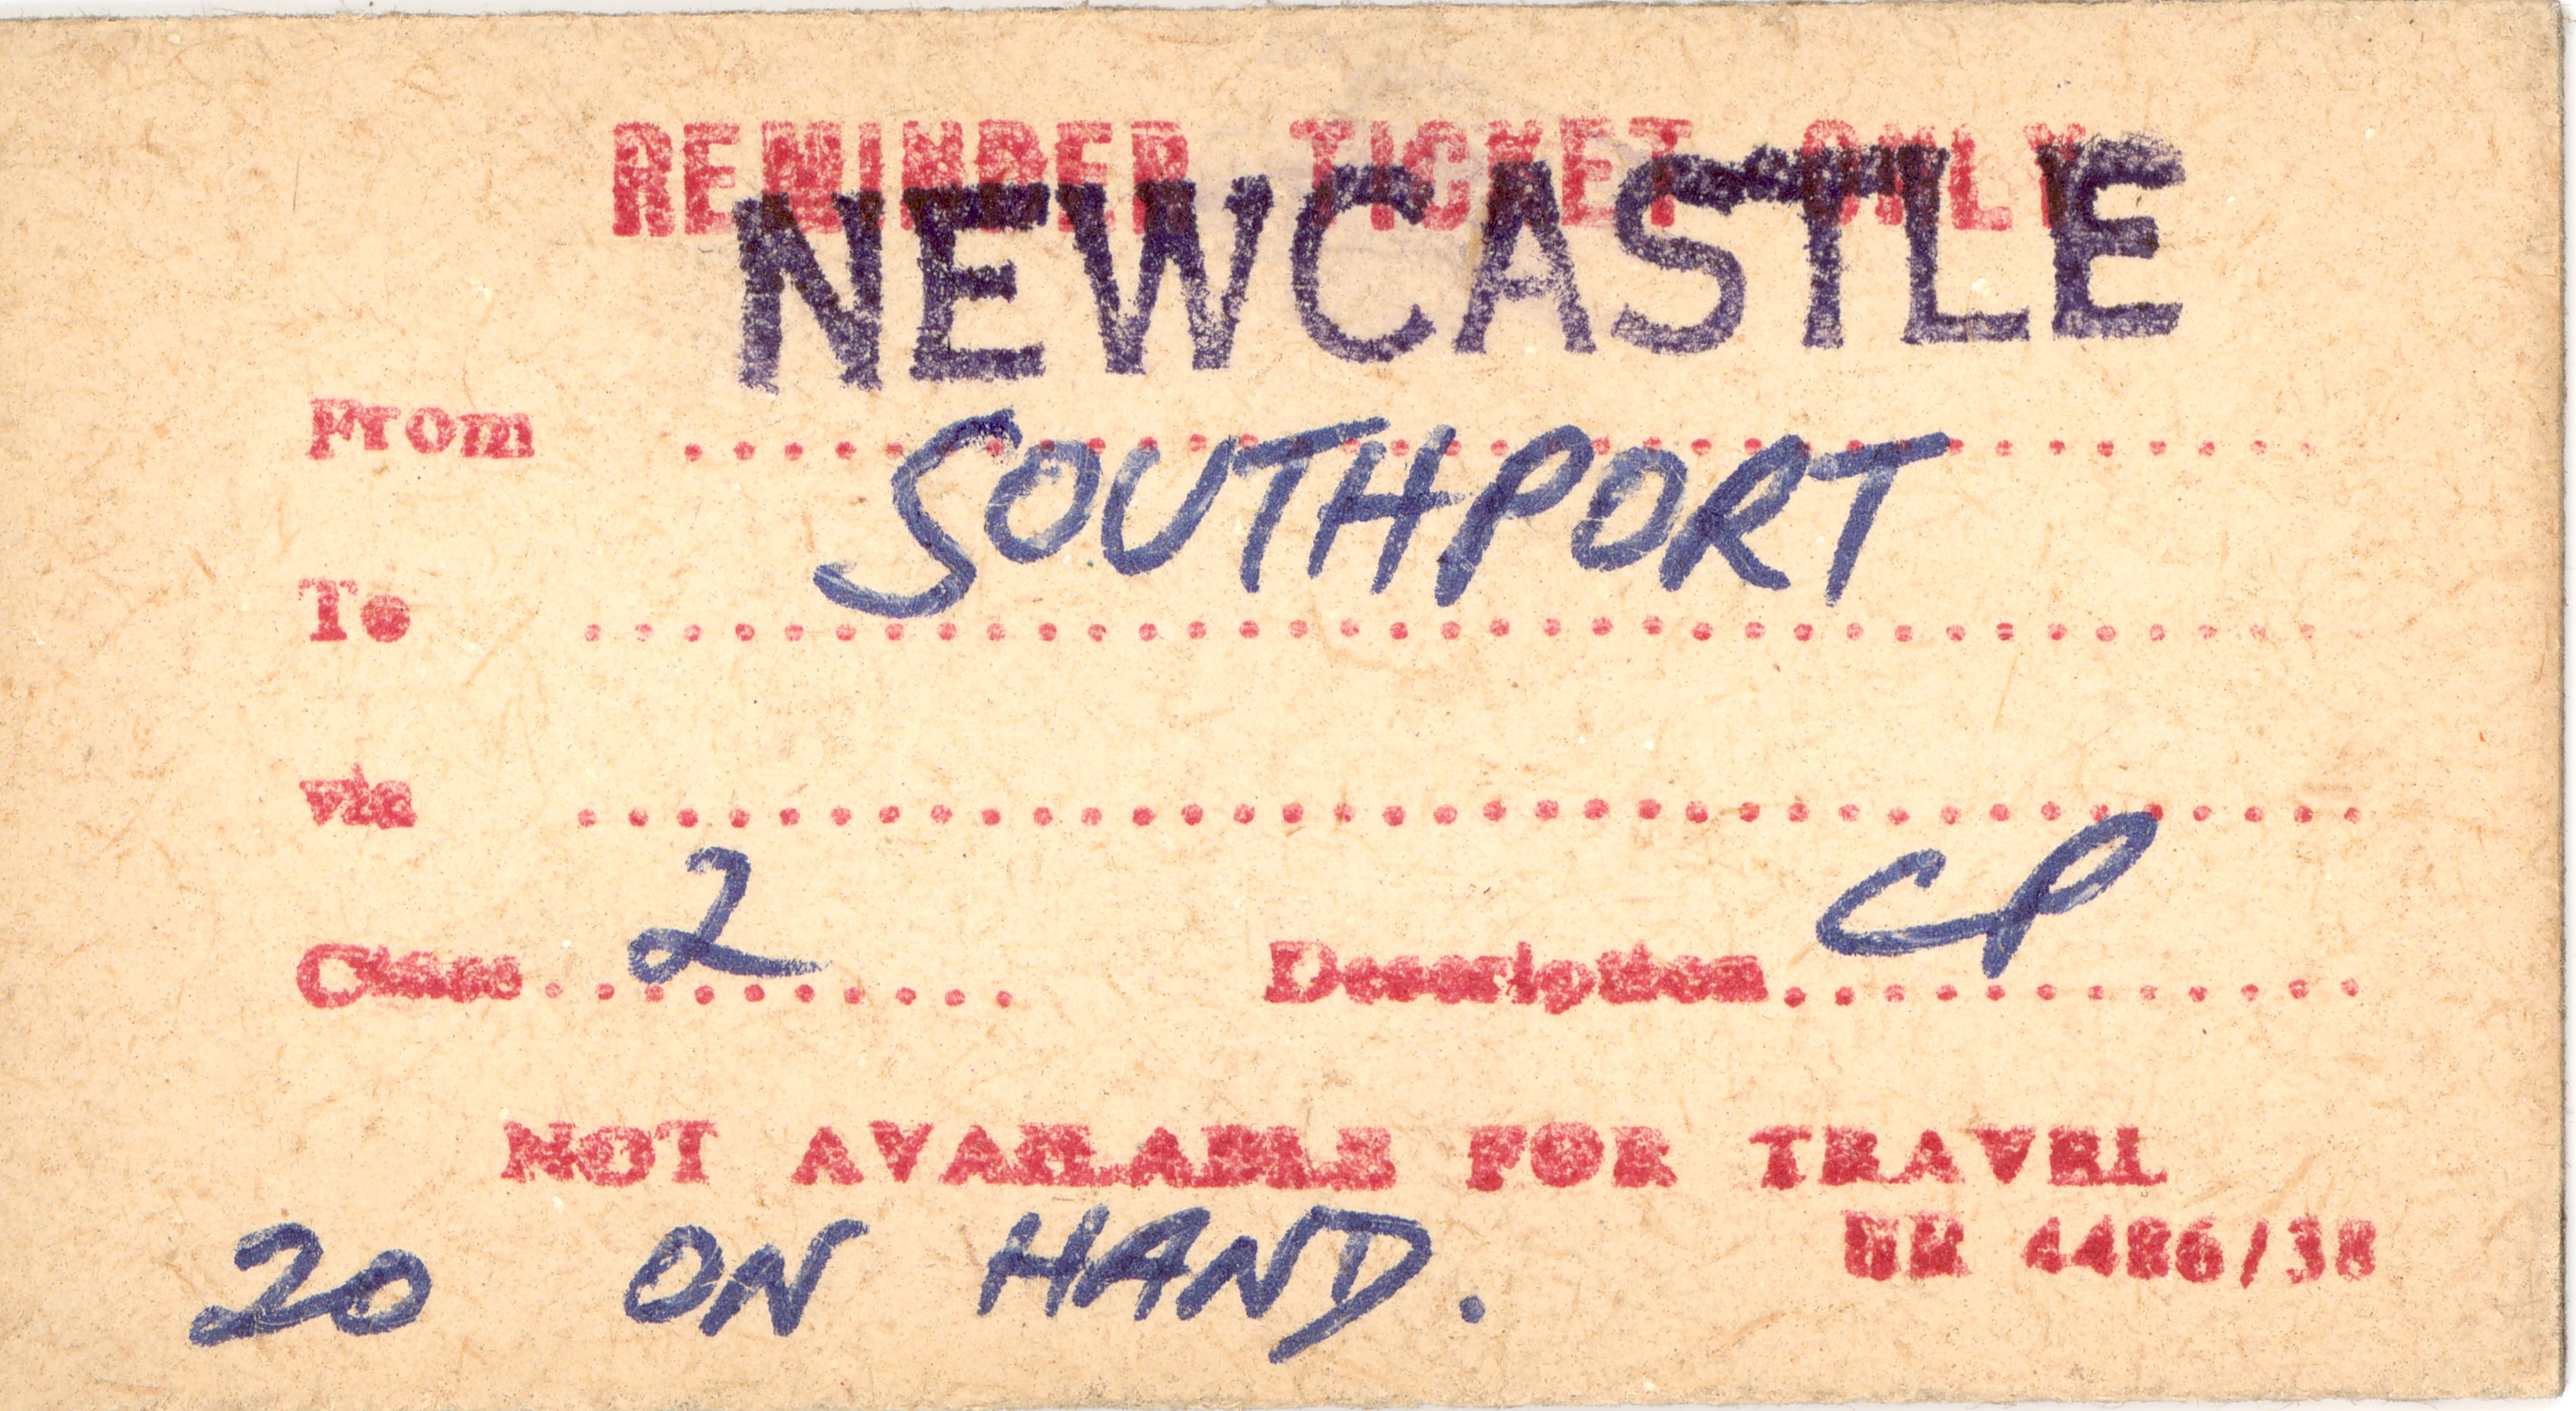 REMINDER TICKET ONLY
NEWCASTLE
From ..................................
SOUTHPORT
To ....................................
via ....................................
Class .......... 2 Description ............ CP
NOT AVAILABLE FOR TRAVEL
20 ON HAND. BR 4486/38